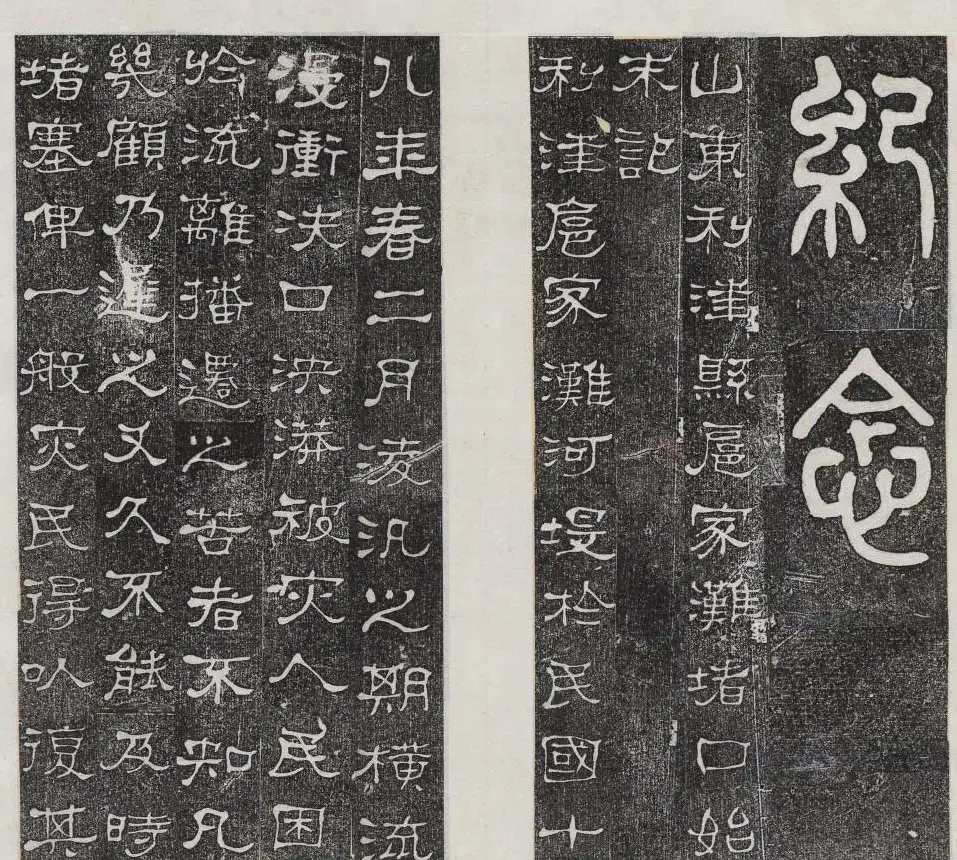 紀念
山東利津縣扈家灘堵口始
末記
利津扈家灘河堤於民國十
八年春二月凌汛之期橫流
漫衝決口泱漭被灾人民困
於流離播遷之苦者不知凡
幾顧乃遲之又久不能及時
堵塞俾一般灾民得以復其